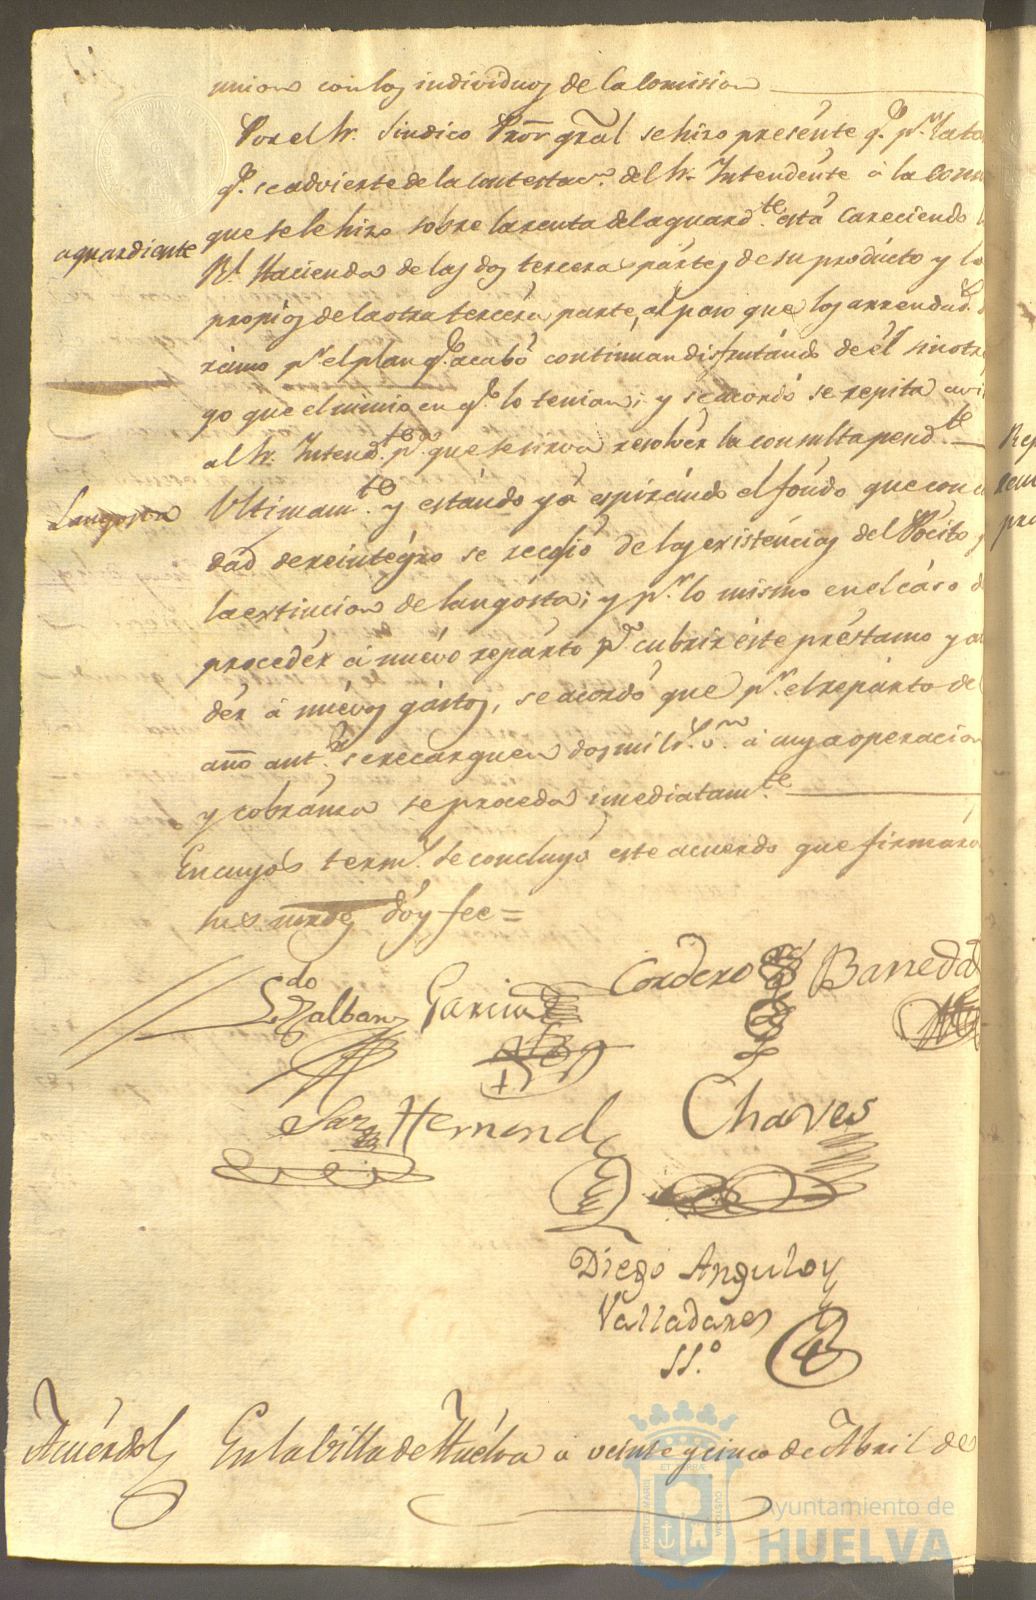 union con los individuos de la Comision
Por el Sr. Sindico Pror. gral se hizo presente q.e p.r la ta
q.e se advierte de la contestac.n del Sr. Intendente à la Con
que se le hizo sobre la renta del aguard.te està careciendo
aguardiente
Rl. Hacienda de las dos terceras partes de su producto y lo
propios de la otra tercera parte, al paso que los arrendad.s
ramo p.r el plan q.e acabó continuan disfrutando de él sin otr
go que el mismo en q.e lo tenian; y se acordó se repita avi
al Sr. Intend.te p.a que se sirva resolver la consulta pend.te
Langosta
Ultimam.te y estándo yá espirándo el fóndo que con c
dad de reintégro se recojió de las existéncias del Pósito
la extincion de langósta; y p.r lo mismo en el cáso d
procedér á nuévo repárto p.a cubrir éste préstamo y a
dér á nuévos gástos, se acordó que p.r el repárto de
año ant.r se recarguen dos mil r.s v.n à cuya operacion
y cobránza se proceda imediatam.te
En cuyos term.s se concluyó este acuerdo que firmáro
sus mrdes dóy fee =
L.do Zalban
Garcia
Cordero
Barreda
Saz
Hernand
Chaves
Diego Angulo y
Valladares
SS.o
Acuérdo
En la Villa de Huélva à veinte y cinco de Abril de
Rep
pro
PORTUS MARIS ET TERRAE CUSTODIA
Ayuntamiento de
HUELVA